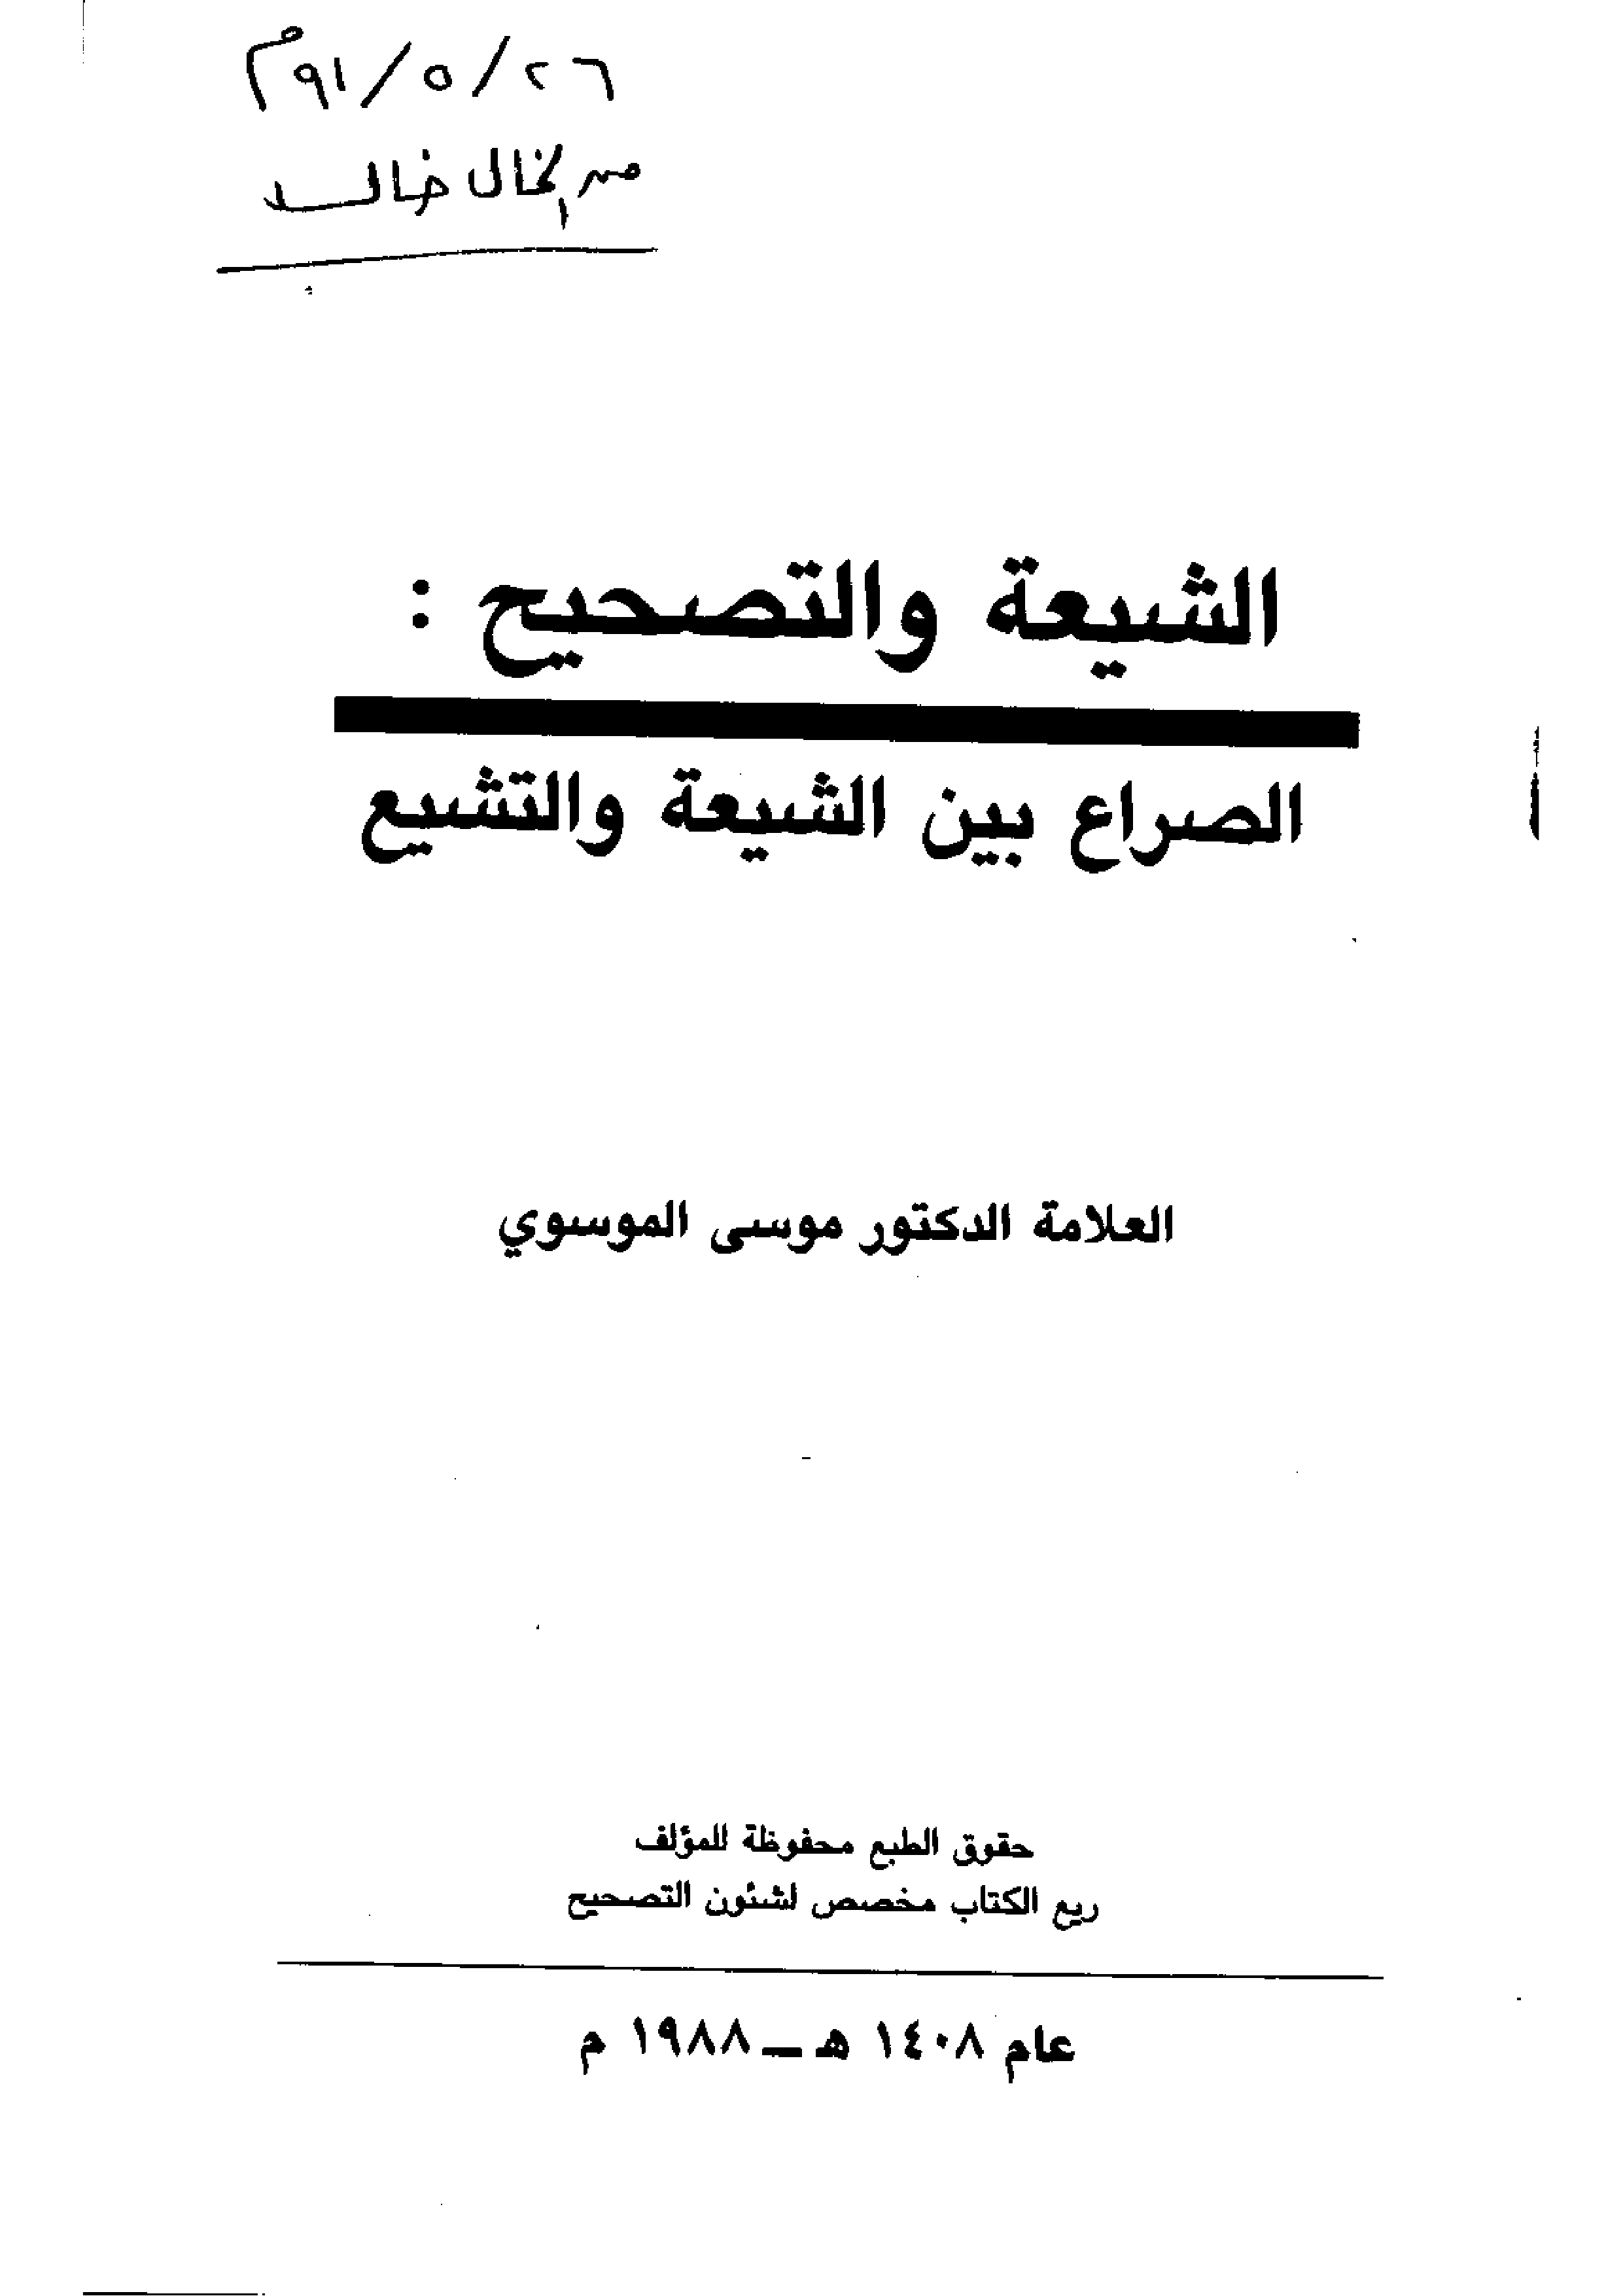 ٢٦/٥/٩١م
من الخال خالد
الشيعة والتصحيح :
الصراع بين الشيعة والتشيع
العلامة الدكتور موسى الموسوي
حقوق الطبع محفوظة للمؤلف
ريع الكتاب مخصص لشئون التصحيح
عام ١٤٠٨ هـ ـ ١٩٨٨ م